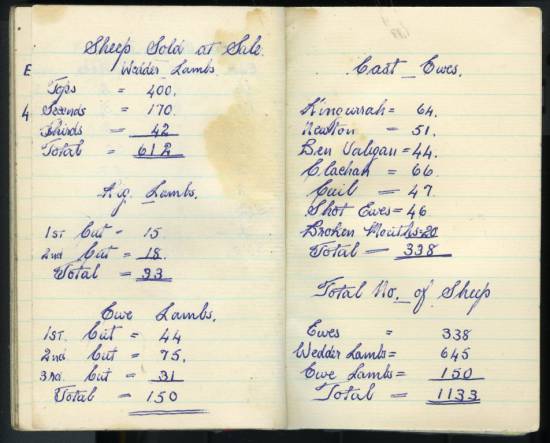 Sheep Sold at Sale.
E
Wedder Lambs.
Tops = 400.
4
Seconds = 170.
Thirds = 42
Total = 612
Lambs.
1st Cut = 15
2nd Cut = 18.
Total = 33
Ewe Lambs.
1st. Cut = 44
2nd Cut = 75.
3rd. Cut = 31
Total = 150
Cast Ewes.
= 64.
Newton = 51.
Ben = 44.
Clachah = 66
Cuil = 47
Shot Ewes = 46
Broken Mouths=20
Total = 338
Total No. of Sheep
Ewes = 338
Wedder Lambs= 645
Ewe Lambs= 150
Total = 1133